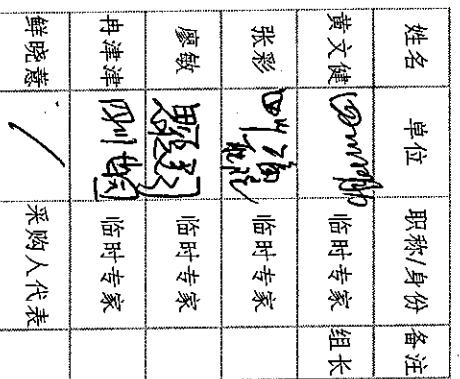 姓名 单位 职称/身份 备注
黄文健 临时专家 组长
张彩 临时专家
廖敏 临时专家
冉津津 临时专家
鲜晓薏 / 采购人代表